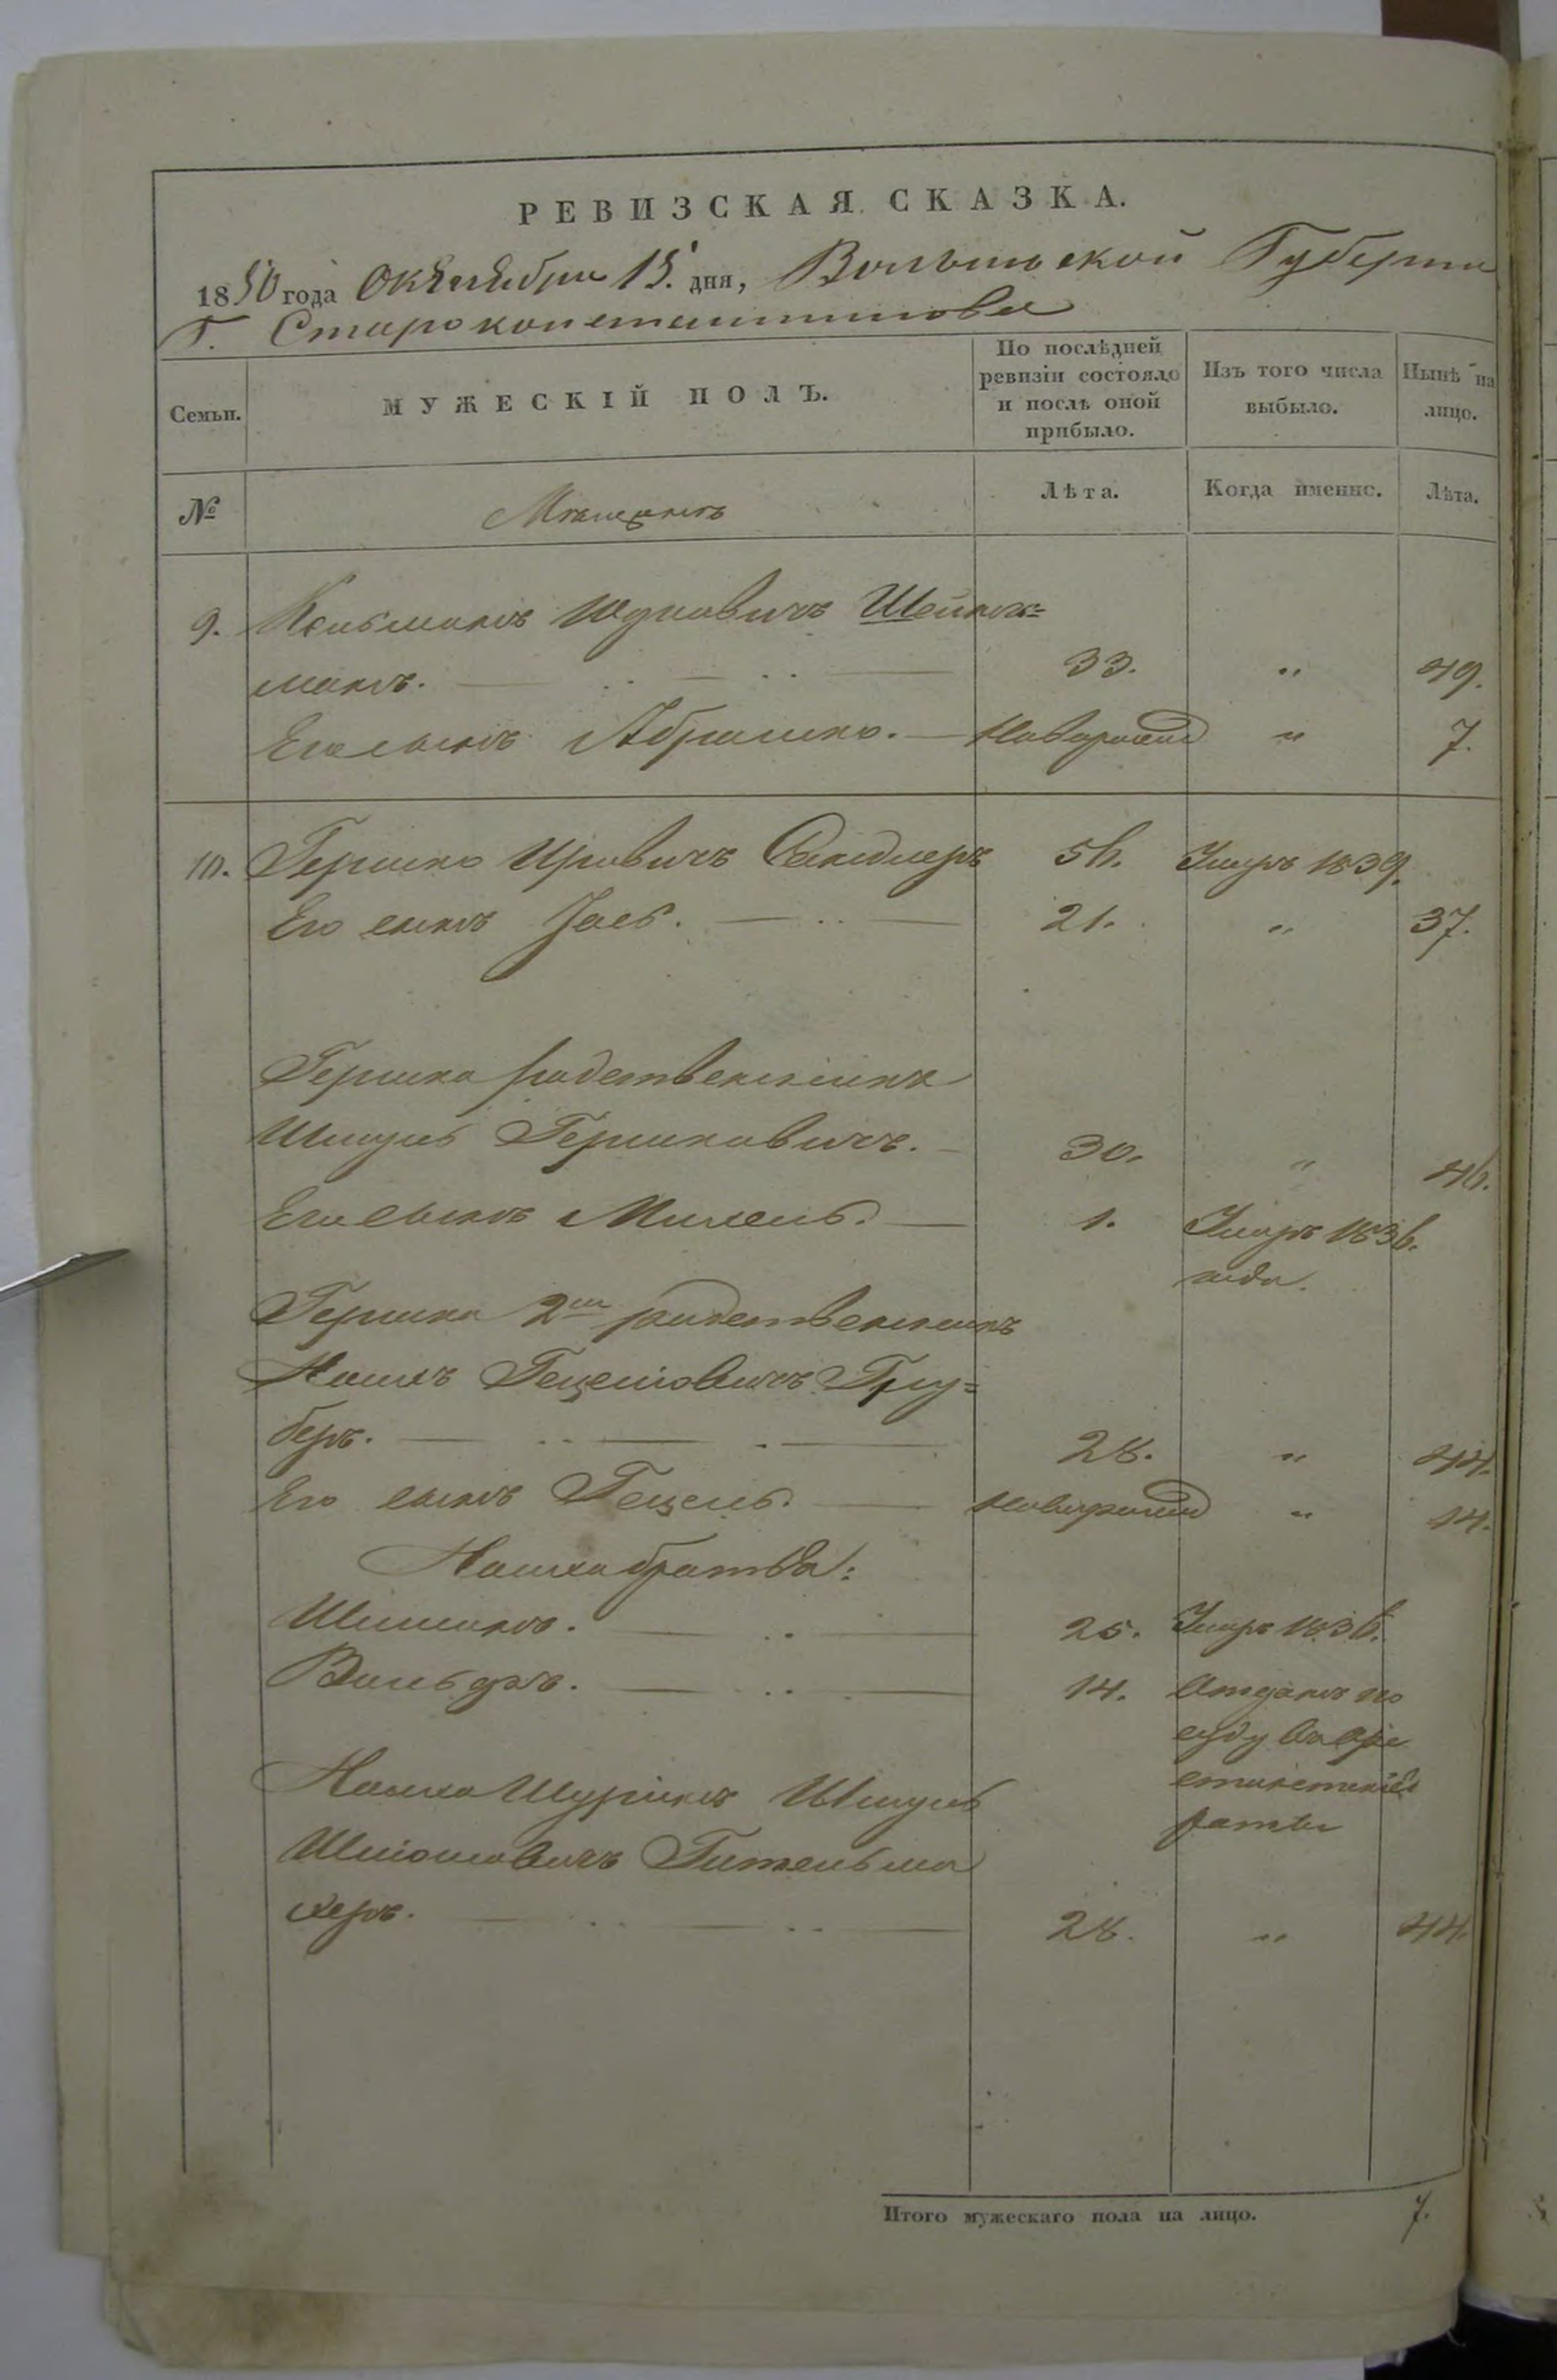 РЕВИЗСКАЯ СКАЗКА.
1850 года Октября 15. дня, Волынской Губернии
Г. Староконстантинова
Семьи. МУЖЕСКІЙ ПОЛЪ. По послѣдней ревизіи состояло и послѣ оной прибыло. Изъ того числа выбыло. Нынѣ на лицо.
№ Мѣщанъ Лѣта. Когда именно. Лѣта.
9. Кельманъ Юдковичъ Шейнж=
манъ. 33. „ 49.
Его сынъ Абрамко. Новорожд „ 7.
10. Гершко Ировичъ Сандлеръ 56. Умеръ 1839.
Его сынъ Іось. 21. „ 37.
Гершка родственника
Шмуль Гершковичъ. 30. „ 46.
Его сынъ Михель. 1. Умеръ 1836.
года.
Гершка 2й родственникъ
Нашхъ Гецелiовичъ Гру=
беръ. 28. „ 44.
Его сынъ Гецель. Новорожд „ 14.
братья:
Шимонъ. 25. Умеръ 1836.
Вольфъ. 14. Отданъ по
суду въ аре
стантскія
роты
Шуринъ Шмуль
Шліомовичъ Гительма
херъ. 28. „ 44.
Итого мужескаго пола на лицо. 7.